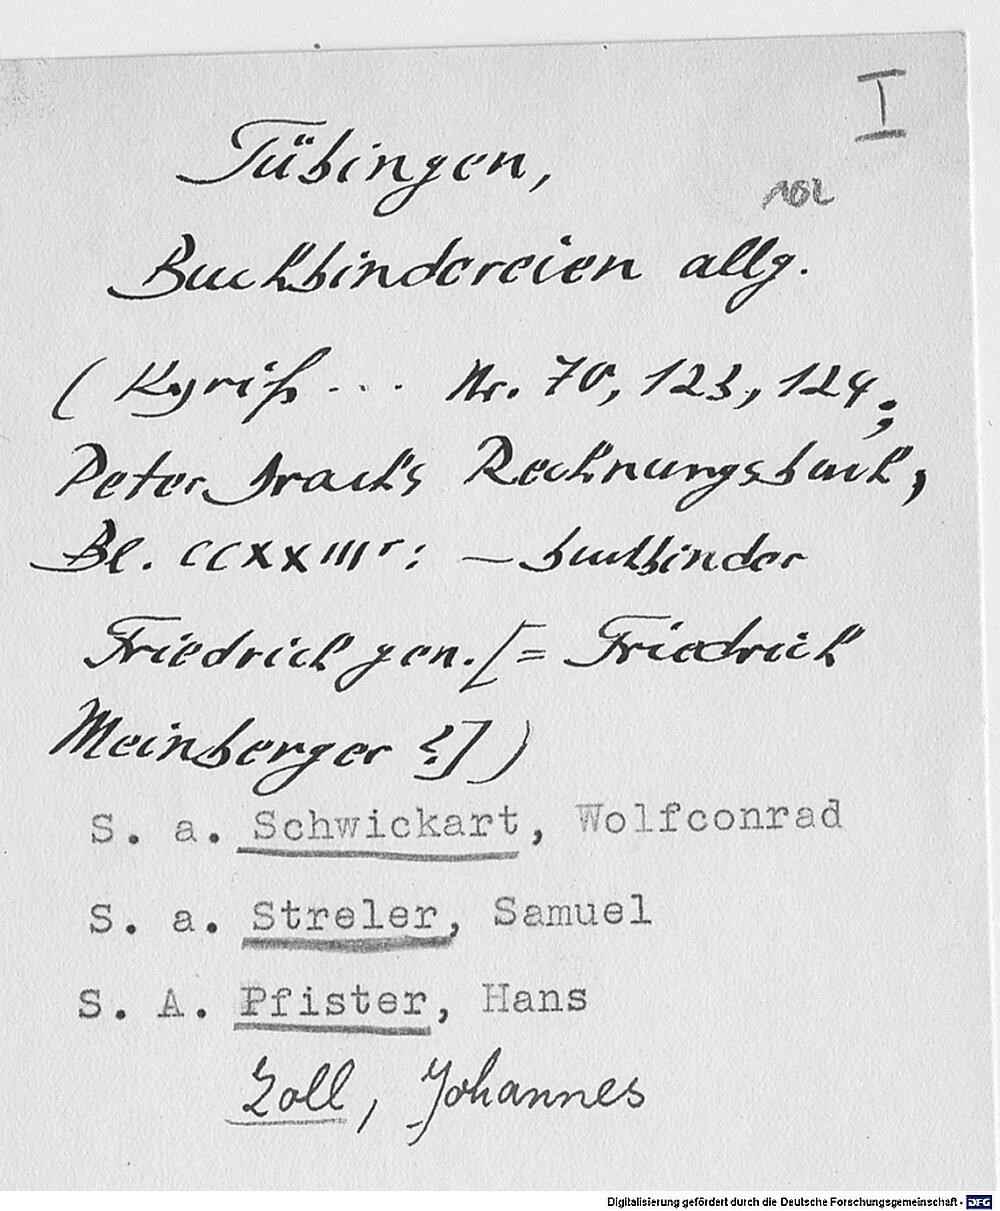 I
Tübingen,
102
Buchbindereien allg.
(Kyriß... Nr. 70, 123, 124;
Peter Drachs Rechnungsbuch,
Bl. CCXXIIIʳ: – buchbinder
Friedrich gen. [= Friedrich
Meinberger ?])
S. a. Schwickart, Wolfconrad
S. a. Streler, Samuel
S. A. Pfister, Hans
Zoll, Johannes
Digitalisierung gefördert durch die Deutsche Forschungsgemeinschaft - DFG